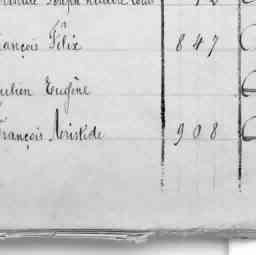 Joseph
François Félix 847
Julien Eugène
François Aristide 908